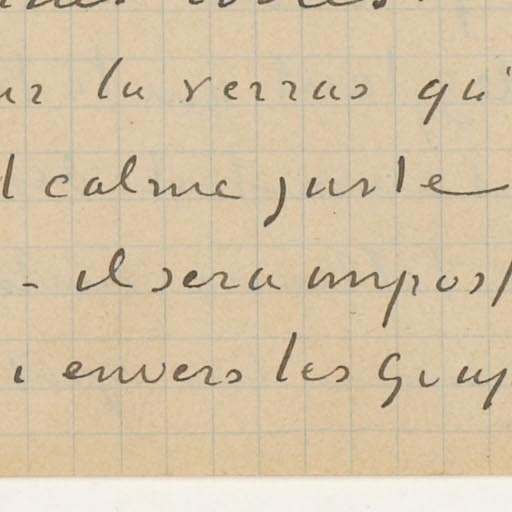 tu verras qu'
calme juste
- il sera impos
envers les